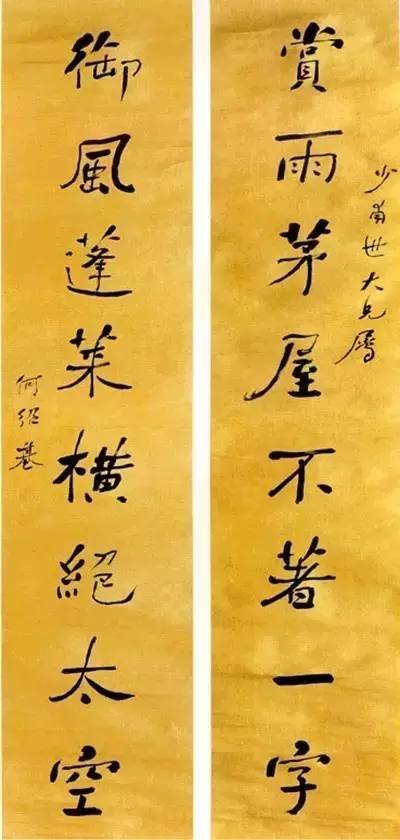 少甫世大兄属
赏雨茅屋不著一字
御風蓬莱橫絕太空
何紹基